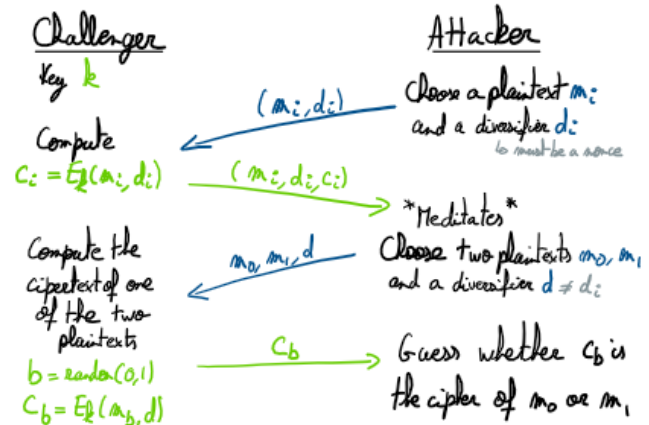 Challenger
Key k
Compute
Ci = Ek(mi, di)
Compute the
cipertext of one
of the two
plaintexts
b = random(0,1)
Cb = Ek(mb, d)
(mi, di)
(mi, di, ci)
m0, m1, d
Cb
Attacker
Choose a plaintext mi
and a diversifier di
↳ must be a nonce
*Meditates*
Choose two plaintexts m0, m1
and a diversifier d ≠ di
Guess whether Cb is
the cipher of m0 or m1